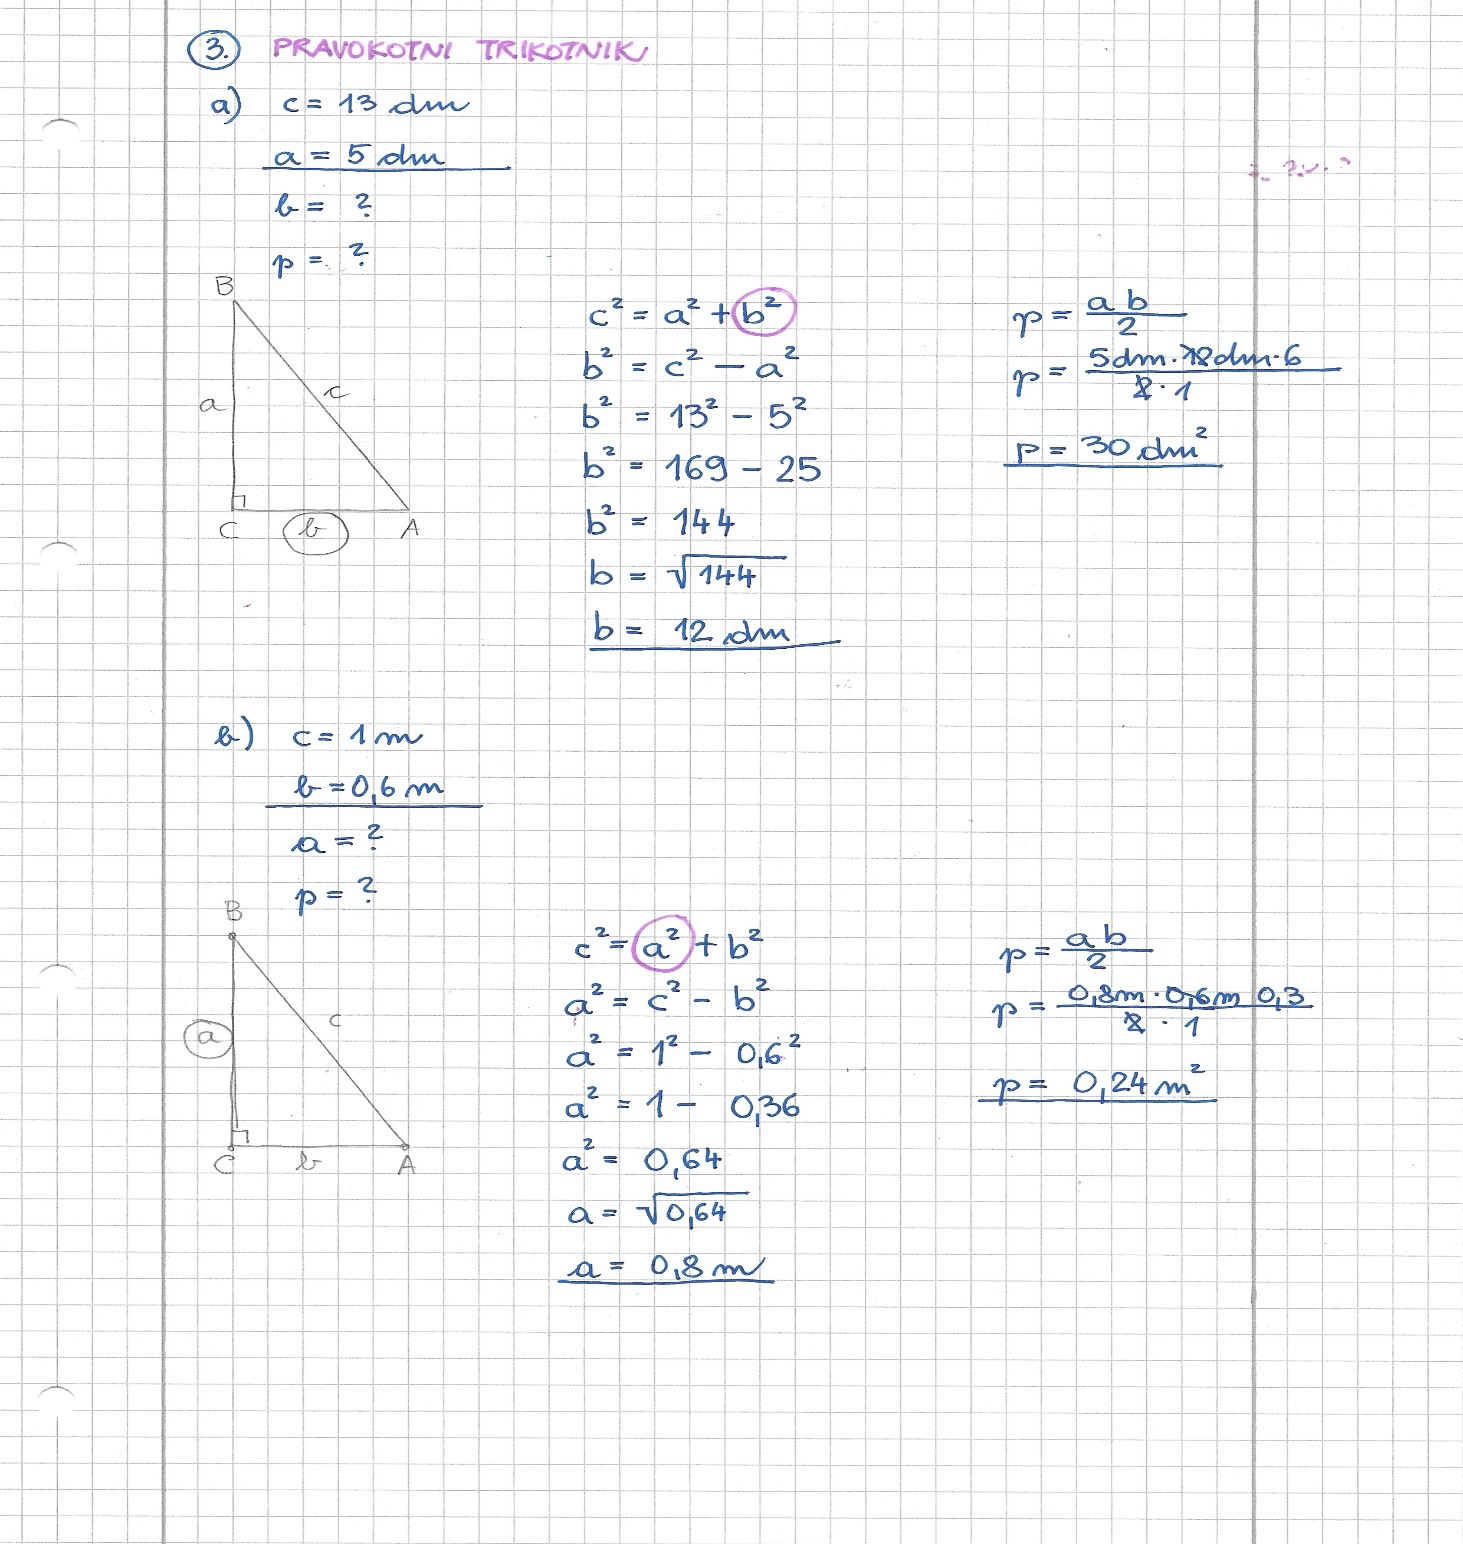 3. PRAVOKOTNI TRIKOTNIK
a) c = 13 dm
a = 5 dm
b = ?
p = ?
B
a
c
C
b
A
c² = a² + b²
b² = c² - a²
b² = 13² - 5²
b² = 169 - 25
b² = 144
b = √144
b = 12 dm
p = ab/2
p = 5dm · 12dm · 6 / 2 · 1
p = 30 dm²
b) c = 1 m
b = 0,6 m
a = ?
p = ?
B
a
c
C
b
A
c² = a² + b²
a² = c² - b²
a² = 1² - 0,6²
a² = 1 - 0,36
a² = 0,64
a = √0,64
a = 0,8 m
p = ab/2
p = 0,8m · 0,6m 0,3 / 2 · 1
p = 0,24 m²